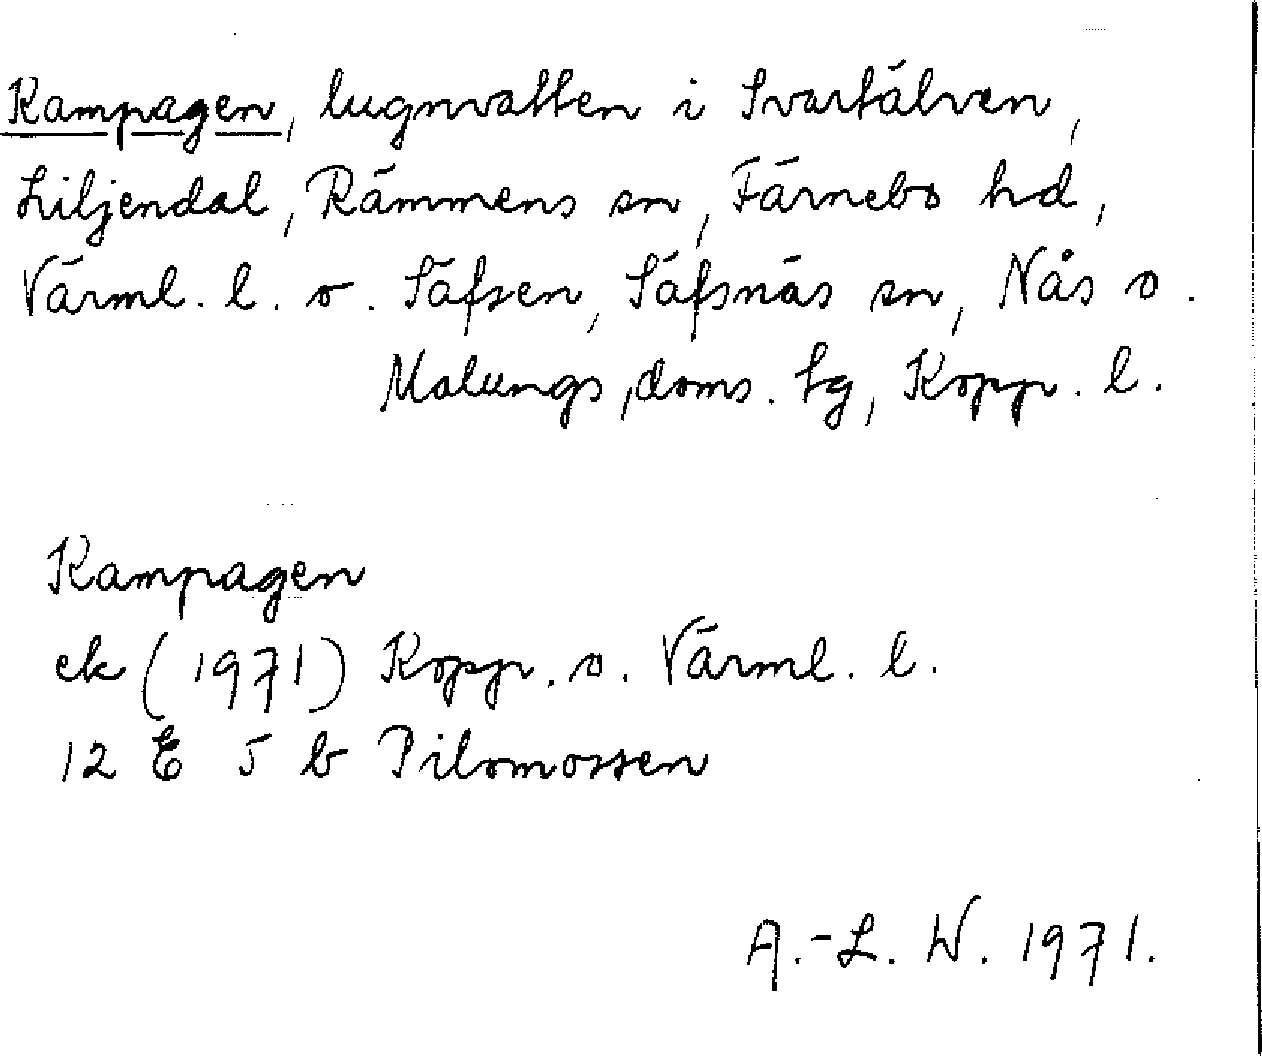 Kampagen, lugnvatten i Svartälven,
Liljendal, Rämmens sn, Färnebo hd,
Värml. l. o. Säfsen, Säfsnäs sn, Nås o.
Malungs doms. tg, Kopp. l.
Kampagen
ek (1971) Kopp. o. Värml. l.
12 E 5 b Pilomossen
A.-L. W. 1971.